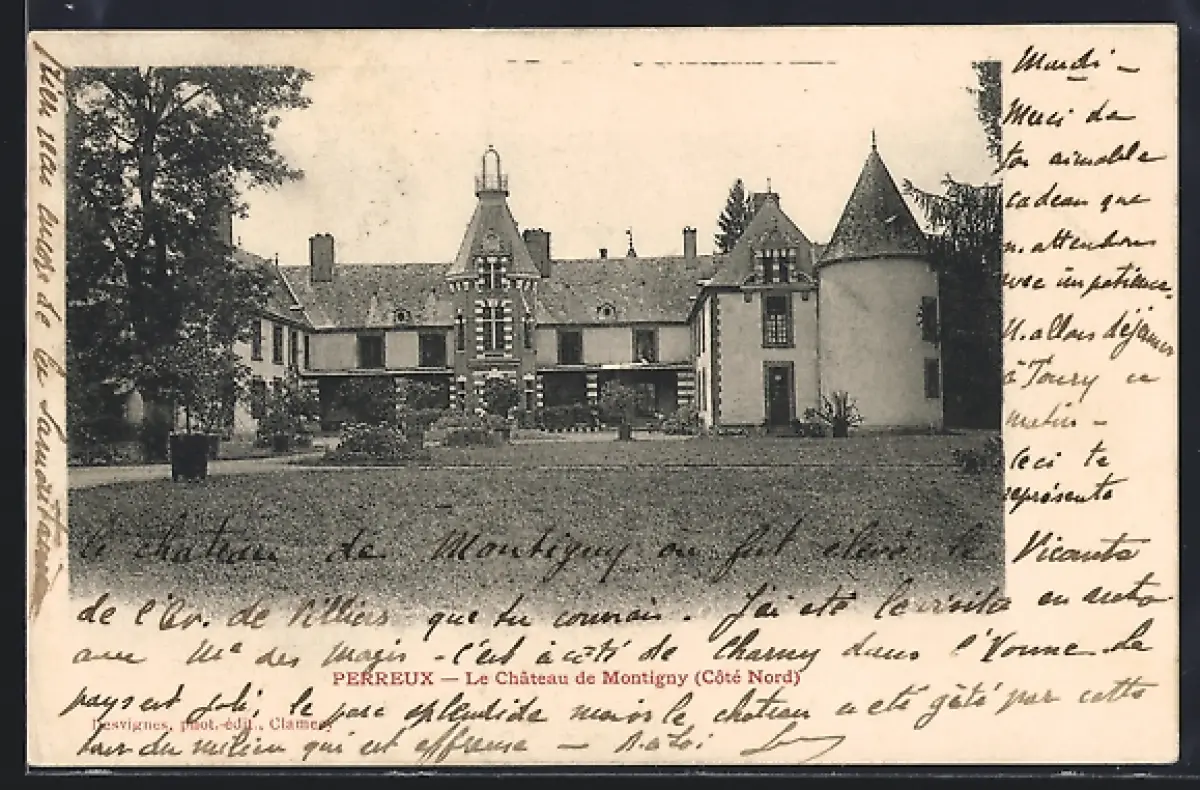 Mardi –
Merci de
ton aimable
cadeau que
n. attendons
avec impatience.
N. allons déjeuner
à Toucy ce
matin –
Ceci te
représente
le chateau de Montigny où fut élevé le Vicomte
de l'Ev. de Villiers que tu connais. J'ai été le visiter en auto
avec Me des – C'est à côté de Charny dans l'Yonne. Le
PERREUX — Le Château de Montigny (Côté Nord)
pays est joli; le parc splendide mais le chateau a été gâté par cette
Desvignes, phot.-édit., Clamecy
tour du milieu qui est affreuse — à toi
de la